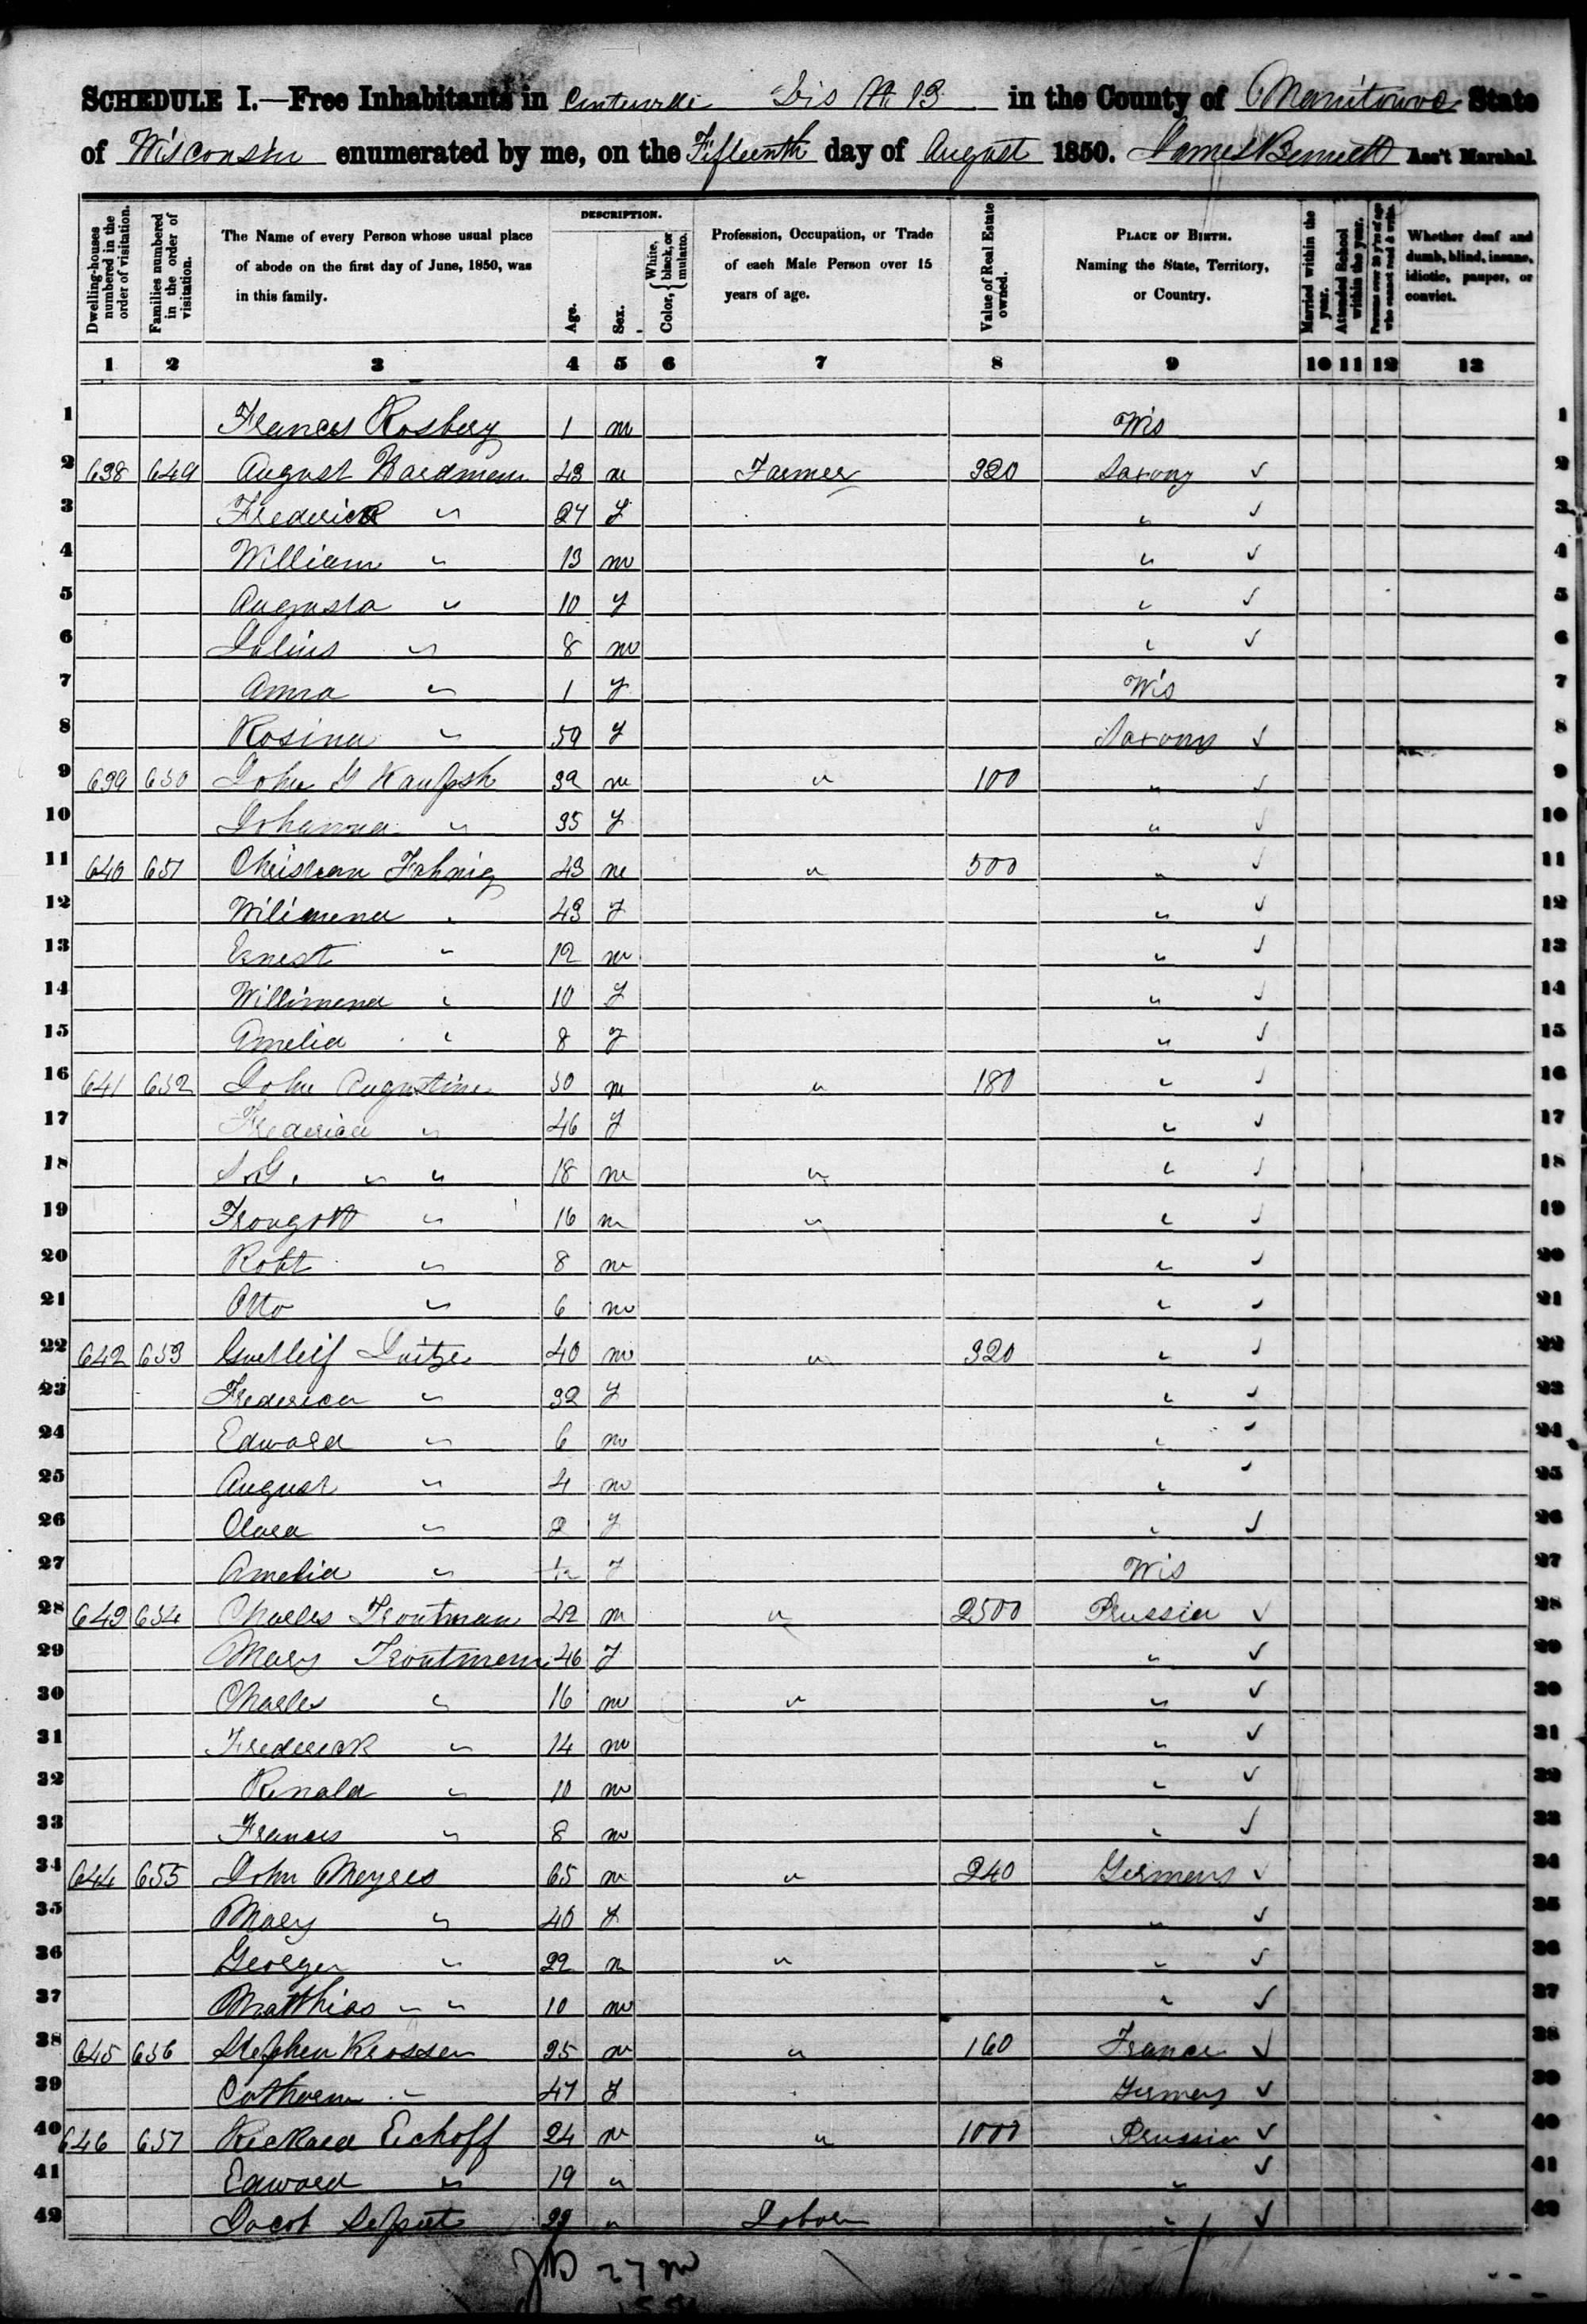 SCHEDULE I.—Free Inhabitants in Centerville Dis No 13 in the County of Manitowoc State
of Wisconsin enumerated by me, on the Fifteenth day of August 1850. James Bennett Ass't Marshal.
Dwelling-houses numbered in the order of visitation.
Families numbered in the order of visitation.
The Name of every Person whose usual place of abode on the first day of June, 1850, was in this family.
DESCRIPTION.
Age.
Sex.
Color, { White, black, or mulatto.
Profession, Occupation, or Trade of each Male Person over 15 years of age.
Value of Real Estate owned.
PLACE OF BIRTH. Naming the State, Territory, or Country.
Married within the year.
Attended School within the year.
Persons over 20 y'rs of age who cannot read & write.
Whether deaf and dumb, blind, insane, idiotic, pauper, or convict.
1 2 3 4 5 6 7 8 9 10 11 12 13
1 Frances Rosberg 1 m Wis 1
2 638 649 August Hardman 43 m Farmer 320 Saxony ✓ 2
3 Frederick " 24 f " ✓ 3
4 William " 13 m " ✓ 4
5 Augusta " 10 f " ✓ 5
6 Julius " 8 m " ✓ 6
7 Anna " 1 f Wis 7
8 Rosina " 59 f Saxony ✓ 8
9 639 650 John G 32 m " 100 " ✓ 9
10 Johanna " 35 f " ✓ 10
11 640 651 Christian Fahnig 43 m " 500 " ✓ 11
12 Wilimena " 43 f " ✓ 12
13 Ernest " 12 m " ✓ 13
14 Willimena " 10 f " ✓ 14
15 Amelia " 8 f " ✓ 15
16 641 652 John Augustine 50 m " 180 " ✓ 16
17 Frederica " 46 f " ✓ 17
18 " " 18 m " " ✓ 18
19 Trougott " 16 m " " ✓ 19
20 Robt " 8 m " ✓ 20
21 Otto " 6 m " ✓ 21
22 642 653 40 m " 320 " ✓ 22
23 Frederica " 32 f " ✓ 23
24 Edward " 6 m " ✓ 24
25 August " 4 m " ✓ 25
26 Clara " 2 f " ✓ 26
27 Amelia " 1/12 f Wis 27
28 643 654 Charles Troutman 42 m " 2500 Prussia ✓ 28
29 Mary Troutman 46 f " ✓ 29
30 Charles " 16 m " " ✓ 30
31 Frederick " 14 m " ✓ 31
32 Rinald " 10 m " ✓ 32
33 Frances " 8 m " ✓ 33
34 644 655 John Meyres 65 m " 240 Germeny ✓ 34
35 Mary " 40 f " ✓ 35
36 George " 22 m " " ✓ 36
37 Matthias " " 10 m " ✓ 37
38 645 656 Stephen Krossen 25 m " 160 France ✓ 38
39 " 47 f Germeny ✓ 39
40 646 657 Rickard Eichoff 24 m " 1000 Prussia ✓ 40
41 Edward " 19 " " ✓ 41
42 Jacob " Labor " ✓ 42
27 m